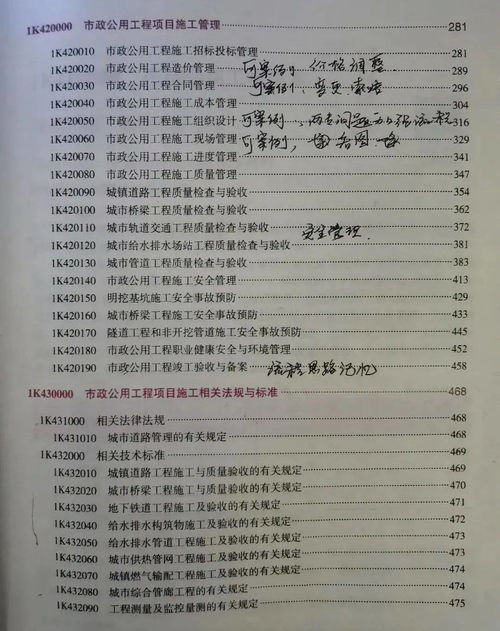 1K420000 市政公用工程项目施工管理 281
1K420010 市政公用工程施工招标投标管理 281
1K420020 市政公用工程造价管理 可案例, 价格调整 289
1K420030 市政公用工程合同管理 可案例, 变更、索赔 296
1K420040 市政公用工程施工成本管理 304
1K420050 市政公用工程施工组织设计 可案例 316
1K420060 市政公用工程施工现场管理 可案例, 329
1K420070 市政公用工程施工进度管理 341
1K420080 市政公用工程施工质量管理 347
1K420090 城镇道路工程质量检查与验收 354
1K420100 城市桥梁工程质量检查与验收 362
1K420110 城市轨道交通工程质量检查与验收 372
1K420120 城市给水排水场站工程质量检查与验收 安全管理. 381
1K420130 城市管道工程质量检查与验收 383
1K420140 市政公用工程施工安全管理 413
1K420150 明挖基坑施工安全事故预防 429
1K420160 城市桥梁工程施工安全事故预防 433
1K420170 隧道工程和非开挖管道施工安全事故预防 445
1K420180 市政公用工程职业健康安全与环境管理 452
1K420190 市政公用工程竣工验收与备案 流程思路记忆 458
1K430000 市政公用工程项目施工相关法规与标准 468
1K431000 相关法律法规 468
1K431010 城市道路管理的有关规定 468
1K432000 相关技术标准 469
1K432010 城镇道路工程施工与质量验收的有关规定 469
1K432020 城市桥梁工程施工及质量验收的有关规定 470
1K432030 地下铁道工程施工及验收的有关规定 471
1K432040 给水排水构筑物施工及验收的有关规定 472
1K432050 给水排水管道工程施工及验收的有关规定 473
1K432060 城市供热管网工程施工及验收的有关规定 473
1K432070 城镇燃气输配工程施工及验收的有关规定 474
1K432080 城市综合管廊工程的有关规定 474
1K432090 工程测量及监控量测的有关规定 475